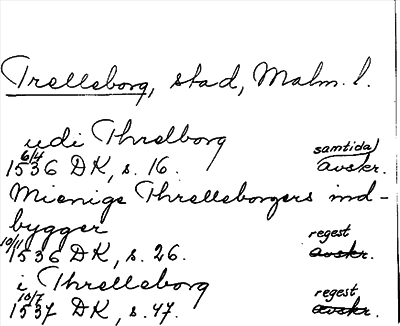 Trelleborg, stad, Malm. l.
udi Threlborg
6/4 samtida
1536 DK, s. 16. avskr.
Mienige Threlleborgers ind-
bygger regest
10/11 1536 DK, s. 26. avskr.
i Threlleborg
10/7 regest
1537 DK, s. 47. avskr.